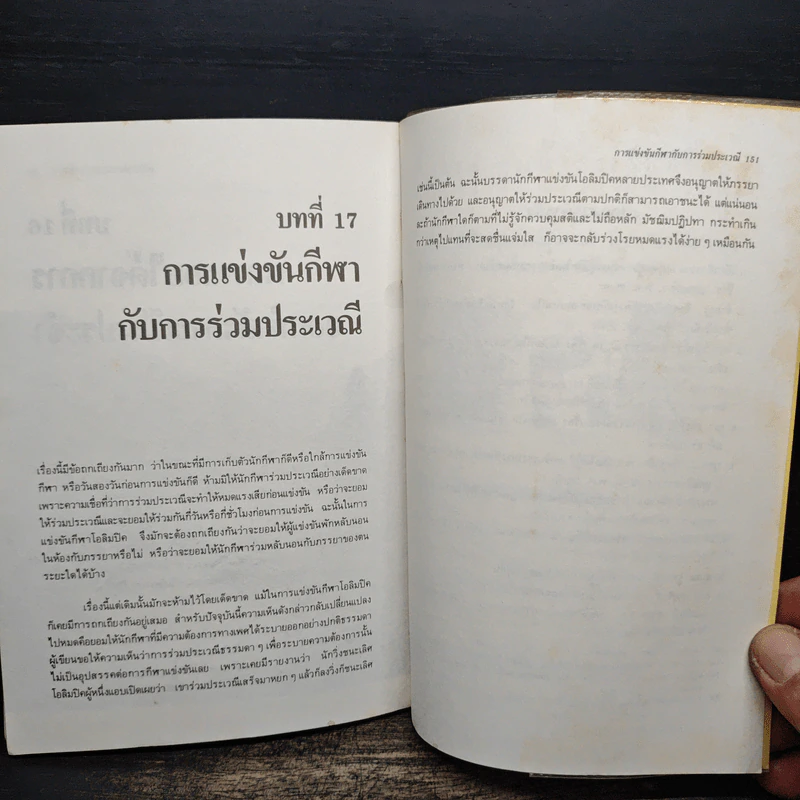 บทที่ 17
การแข่งขันกีฬา
กับการร่วมประเวณี
เรื่องนี้มีข้อถกเถียงกันมาก ว่าในขณะที่มีการเก็บตัวนักกีฬาก็ดีหรือใกล้การแข่งขัน
กีฬา หรือวันสองวันก่อนการแข่งขันก็ดี ห้ามมิให้นักกีฬาร่วมประเวณีอย่างเด็ดขาด
เพราะความเชื่อที่ว่าการร่วมประเวณีจะทำให้หมดแรงเสียก่อนแข่งขัน หรือว่าจะยอม
ให้ร่วมประเวณีและจะยอมให้ร่วมกันกี่วันหรือกี่ชั่วโมงก่อนการแข่งขัน ฉะนั้นในการ
แข่งขันกีฬาโอลิมปิค จึงมักจะต้องถกเถียงกันว่าจะยอมให้ผู้แข่งขันพักหลับนอน
ในห้องกับภรรยาหรือไม่ หรือว่าจะยอมให้นักกีฬาร่วมหลับนอนกับภรรยาของตน
ระยะใดได้บ้าง
เรื่องนี้แต่เดิมนั้นมักจะห้ามไว้โดยเด็ดขาด แม้ในการแข่งขันกีฬาโอลิมปิค
ก็เคยมีการถกเถียงกันอยู่เสมอ สำหรับปัจจุบันนี้ความเห็นดังกล่าวกลับเปลี่ยนแปลง
ไปหมดคือยอมให้นักกีฬาที่มีความต้องการทางเพศได้ระบายออกอย่างปกติธรรมดา
ผู้เขียนขอให้ความเห็นว่าการร่วมประเวณีธรรมดา ๆ เพื่อระบายความต้องการนั้น
ไม่เป็นอุปสรรคต่อการกีฬาแข่งขันเลย เพราะเคยมีรายงานว่า นักวิ่งชนะเลิศ
โอลิมปิคผู้หนึ่งแอบเปิดเผยว่า เขาร่วมประเวณีเสร็จมาหยก ๆ แล้วก็ลงวิ่งก็ชนะเลิศ
การแข่งขันกีฬากับการร่วมประเวณี 151
เช่นนี้เป็นต้น ฉะนั้นบรรดานักกีฬาแข่งขันโอลิมปิคหลายประเทศจึงอนุญาตให้ภรรยา
เดินทางไปด้วย และอนุญาตให้ร่วมประเวณีตามปกติก็สามารถเอาชนะได้ แต่แน่นอน
ละถ้านักกีฬาใดก็ตามที่ไม่รู้จักควบคุมสติและไม่ถือหลัก มัชฌิมปฏิปทา กระทำเกิน
กว่าเหตุไปแทนที่จะสดชื่นแจ่มใส ก็อาจจะกลับร่วงโรยหมดแรงได้ง่าย ๆ เหมือนกัน